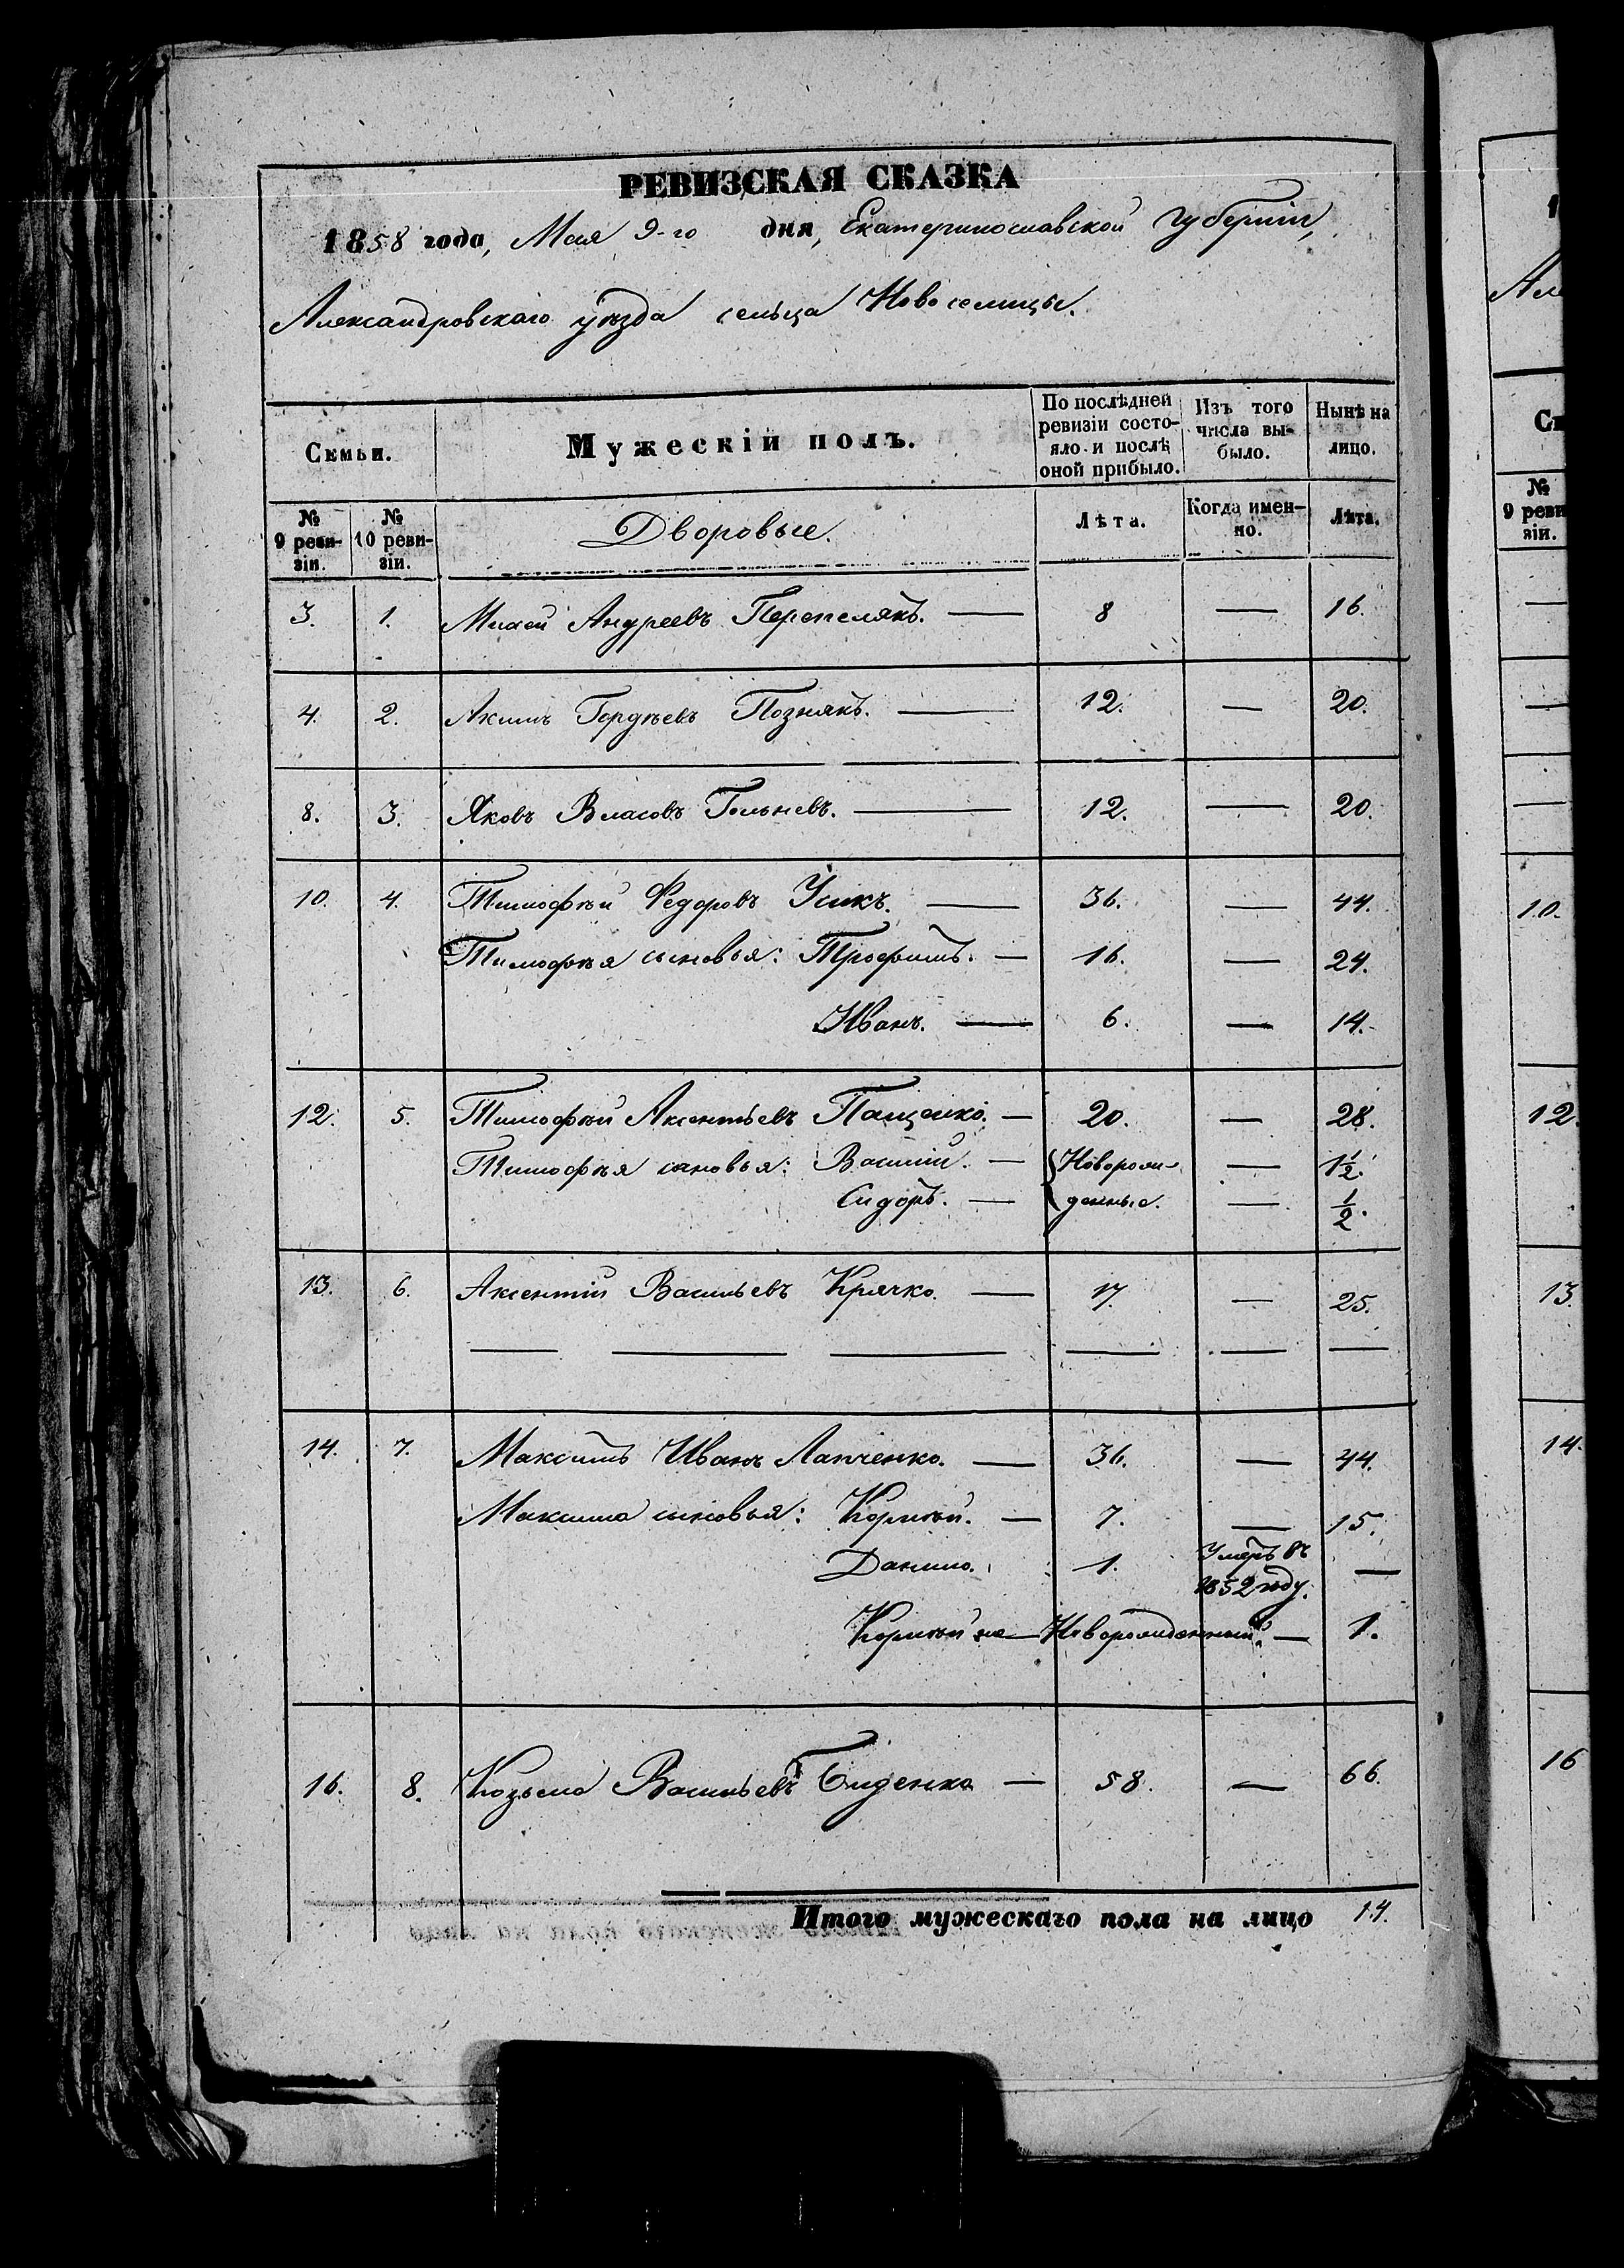 РЕВИЗСКАЯ СКАЗКА
1858 года, Мая 9-го дня, Екатеринославской Губерніи,
Александровскаго уѣзда сельца Новоселицы.
Семьи. Мужескій полъ. По послѣдней ревизіи состояло и послѣ оной прибыло. Изъ того числа выбыло. Нынѣ на лицо.
№ 9 ревизіи. № 10 ревизіи. Дворовые. Лѣта. Когда именно. Лѣта.
3. 1. Андреевъ Перепелякъ. — 8 — 16.
4. 2. Акимъ Гордѣевъ Познякъ. — 12. — 20.
8. 3. Яковъ Власовъ — 12. — 20.
10. 4. Тимофѣй Федоровъ Усикъ. — 36. — 44.
Тимофѣя сыновья: Трофимъ. — 16. — 24.
Иванъ. — 6. — 14.
12. 5. Тимофѣй Аксентьевъ Пащенко. — 20. — 28.
Тимофѣя сыновья: Василій. — Новорож- — 1½.
Сидоръ. — денные. — ½.
13. 6. Аксентій Васильевъ Крячко. — 17. — 25.
14. 7. Максимъ Иванъ Лапченко. — 36. — 44.
Максима сыновья: Корнѣй. — 7. — 15.
Данило. 1. Умеръ въ —
1852 году.
Корнѣй — Новорожденный. — 1.
16. 8. Козьма Васильевъ — 58. — 66.
Итого мужескаго пола на лицо 14.
№
9 реви
зіи.
10.
12.
13.
14.
16